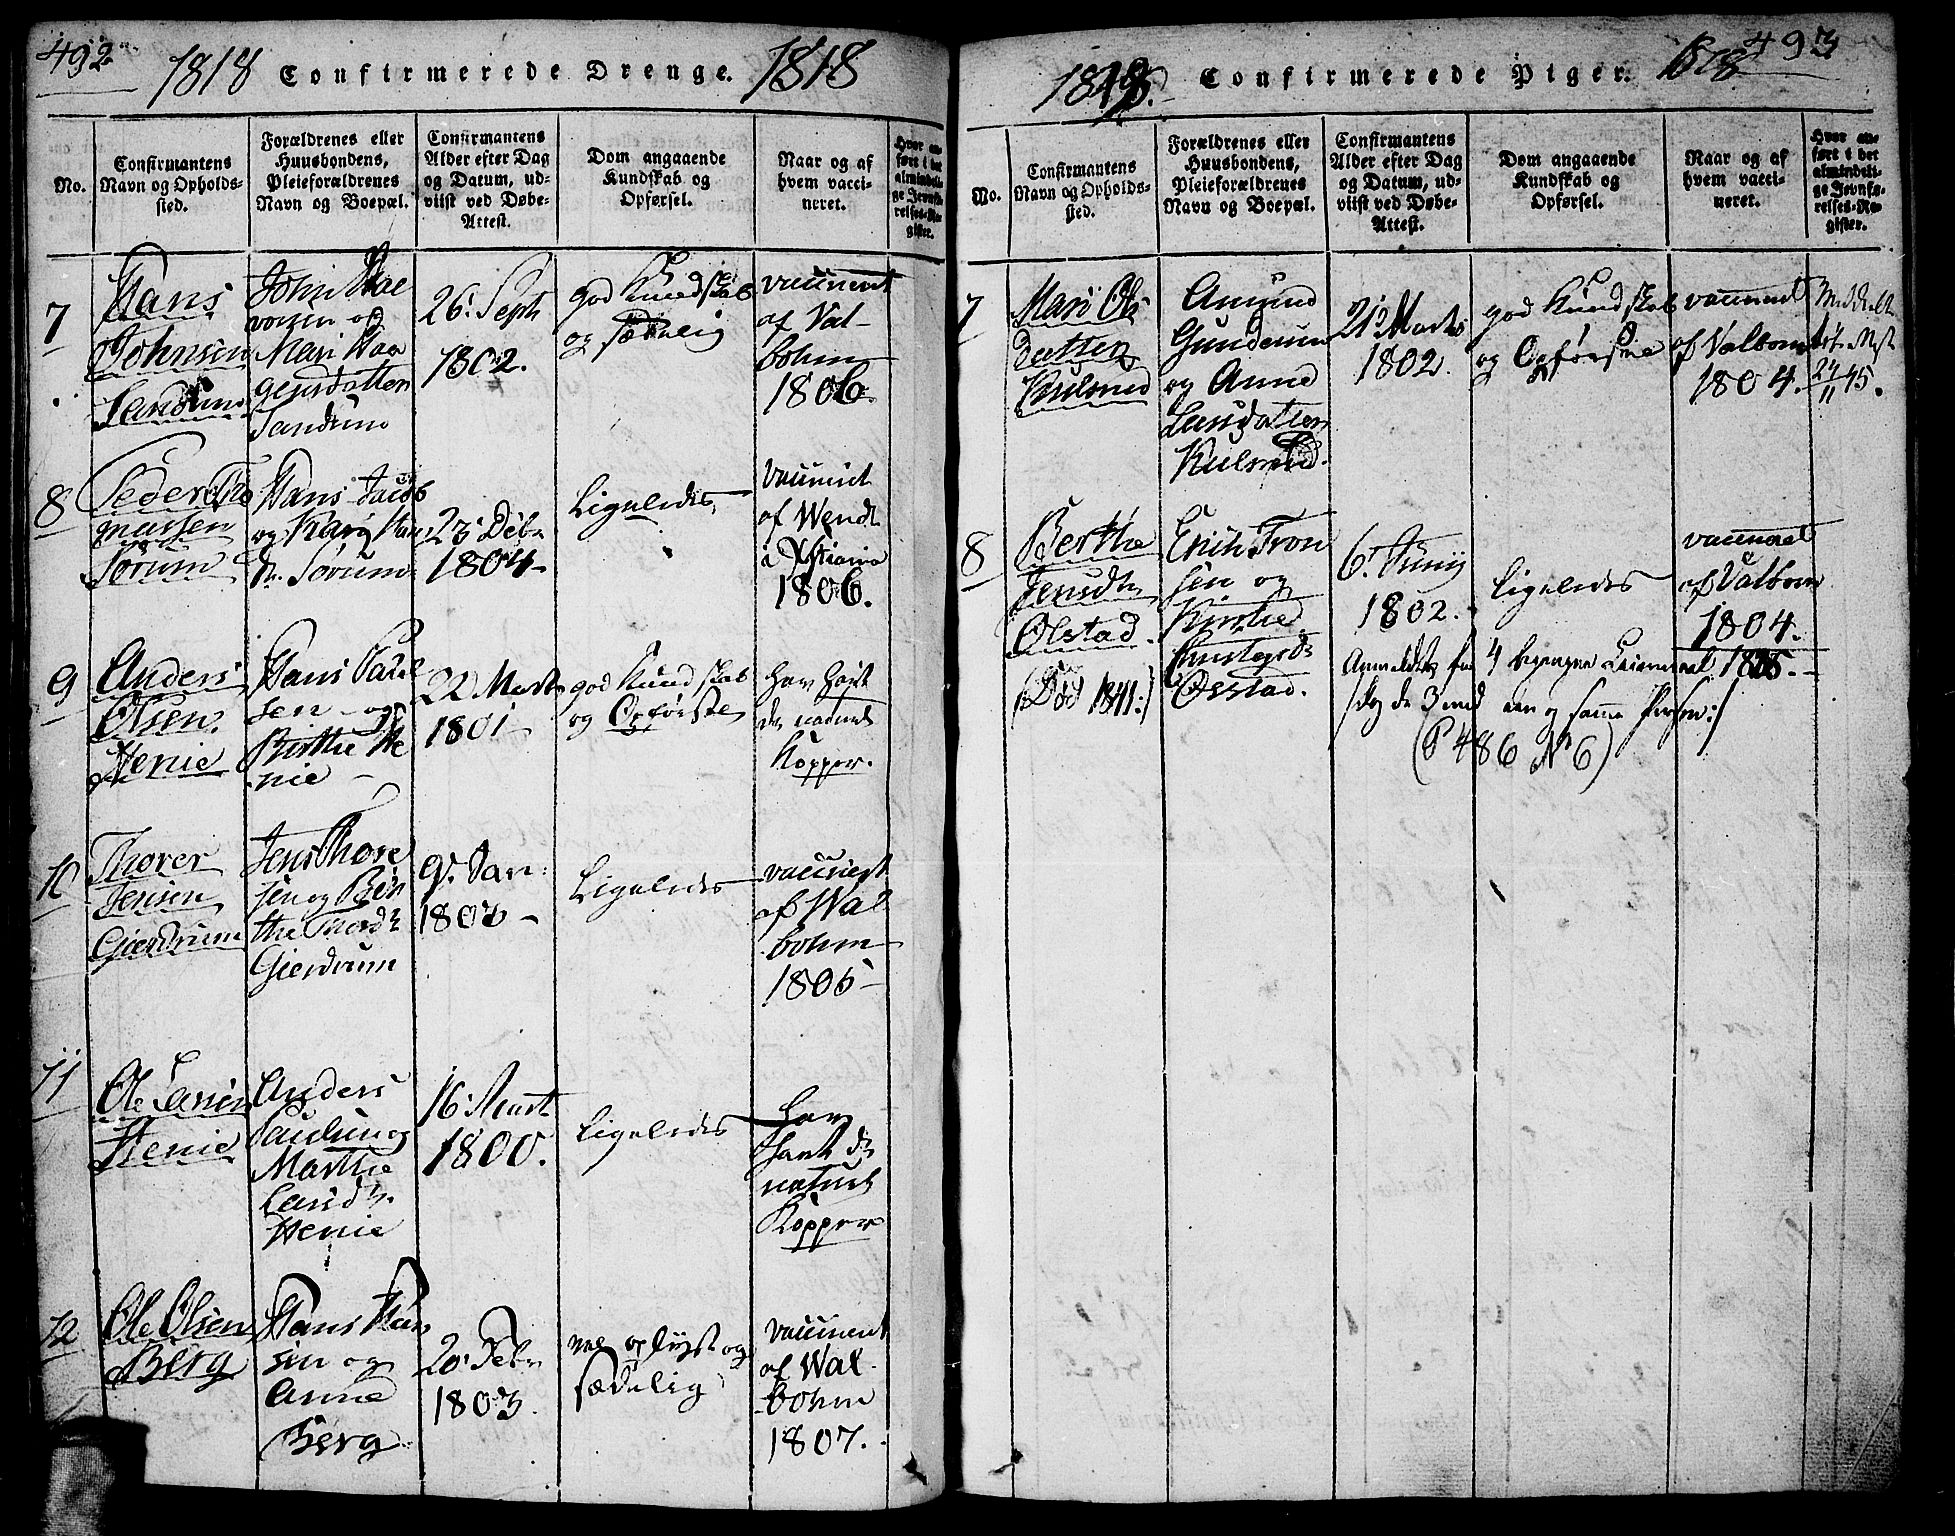 492
1818 Confirmerede Drenge. 1818
No.
Confirmantens
Navn og Opholds-
sted.
Forældrenes eller
Huusbondens,
Pleieforældrenes
Navn og Boepæl.
Confirmantens
Alder efter Dag
og Datum, ud-
viist ved Døbe-
Attest.
Dom angaaende
Kundskab og
Opførsel.
Naar og af
hvem vacci-
neret.
Hvor an-
ført i det
almindeli-
ge Jevnfø-
relses-Re-
gister.
7
Hans
Johnsen
Sandum
John Haa
vorsen og
Mari Haa
gensdatter
Sandum
26. Septr
1802.
god Kundskab
og sædelig
vaccineret
af Wal-
bohm
1806.
8
Peder Tho
massen
Sørum
Hans Jacob
og Kari Han
dr. Sørum
23. Debr
1804
Ligeledes
vaccineret
af Wendt
i Xstiania
1806.
9
Anders
Olsen
Henie
Hans Paul
sen og
Berthe He
nie
22 Marts
1801
god Kundskab
og Opførsel
har havt
de naturl
Kopper.
10
Thorer
Jensen
Gierdrum
Jens Thore
sen og Ber
the
Gierdrum
9. Jan:
1803
Ligeledes
vaccineret
af Wal
bohm
1805
11
Ole Larsen
Henie
Anders
Paulsen og
Marthe
Larsd.
Henie
16. Marts
1800.
Ligeledes
har
havt de
naturl
Kopper
12
Ole Olsen
Berg
Hans Han
sen og
Anne
Berg
20. Febr
1803.
vel oplyst og
sædelig
vaccineret
af Wal-
bohm
1807.
493
1818. Confirmerede Piger. 1818
No.
Confirmantens
Navn og Opholds-
sted.
Forældrenes eller
Huusbondens,
Pleieforældrenes
Navn og Boepæl.
Confirmantens
Alder efter Dag
og Datum, ud-
viist ved Døbe-
Attest.
Dom angaaende
Kundskab og
Opførsel.
Naar og af
hvem vacci-
neret.
Hvor an-
ført i det
almindeli-
ge Jevnfø-
relses-Re-
gister.
7
Mari Ols
datter
Kulsrud
Amund
Gunderuu
og Anne
Larsdatter
Kulsrud.
21 Marts
1802.
god Kundskab
og Opførsel
vaccineret
af Valbom
1804.
Meddelt
Att.
24/11 45.
8
Berthe
Jensdtr
Ølstad.
(Død 1841:)
Erich Tron
sen og
Kirstie
Christophsdr
Ølstad.
6. Junij
1802.
Ligeledes
vaccineret
af Valbom
1804.
Anmeldtes for 4 begangne Leiermaal 1825.
/: dog de 3 med een og samme Person:/
(P 486 N 6)